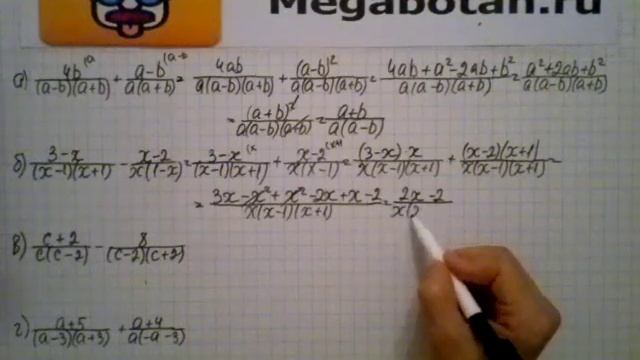 Megabotan.ru
а) 4b/(a-b)(a+b) + a-b/a(a+b) = 4ab/a(a-b)(a+b) + (a-b)²/a(a-b)(a+b) = 4ab+a²-2ab+b²/a(a-b)(a+b) = a²+2ab+b²/a(a-b)(a+b)
= (a+b)²/a(a-b)(a+b) = a+b/a(a-b)
б) 3-x/(x-1)(x+1) - x-2/x(1-x) = 3-x/(x-1)(x+1) + x-2/x(x-1) = (3-x)x/x(x-1)(x+1) + (x-2)(x+1)/x(x-1)(x+1) =
= 3x-x²+x²-2x+x-2/x(x-1)(x+1) = 2x-2/x(
в) c+2/c(c-2) - 8/(c-2)(c+2)
г) a+5/(a-3)(a+3) + a+4/a(-a-3)